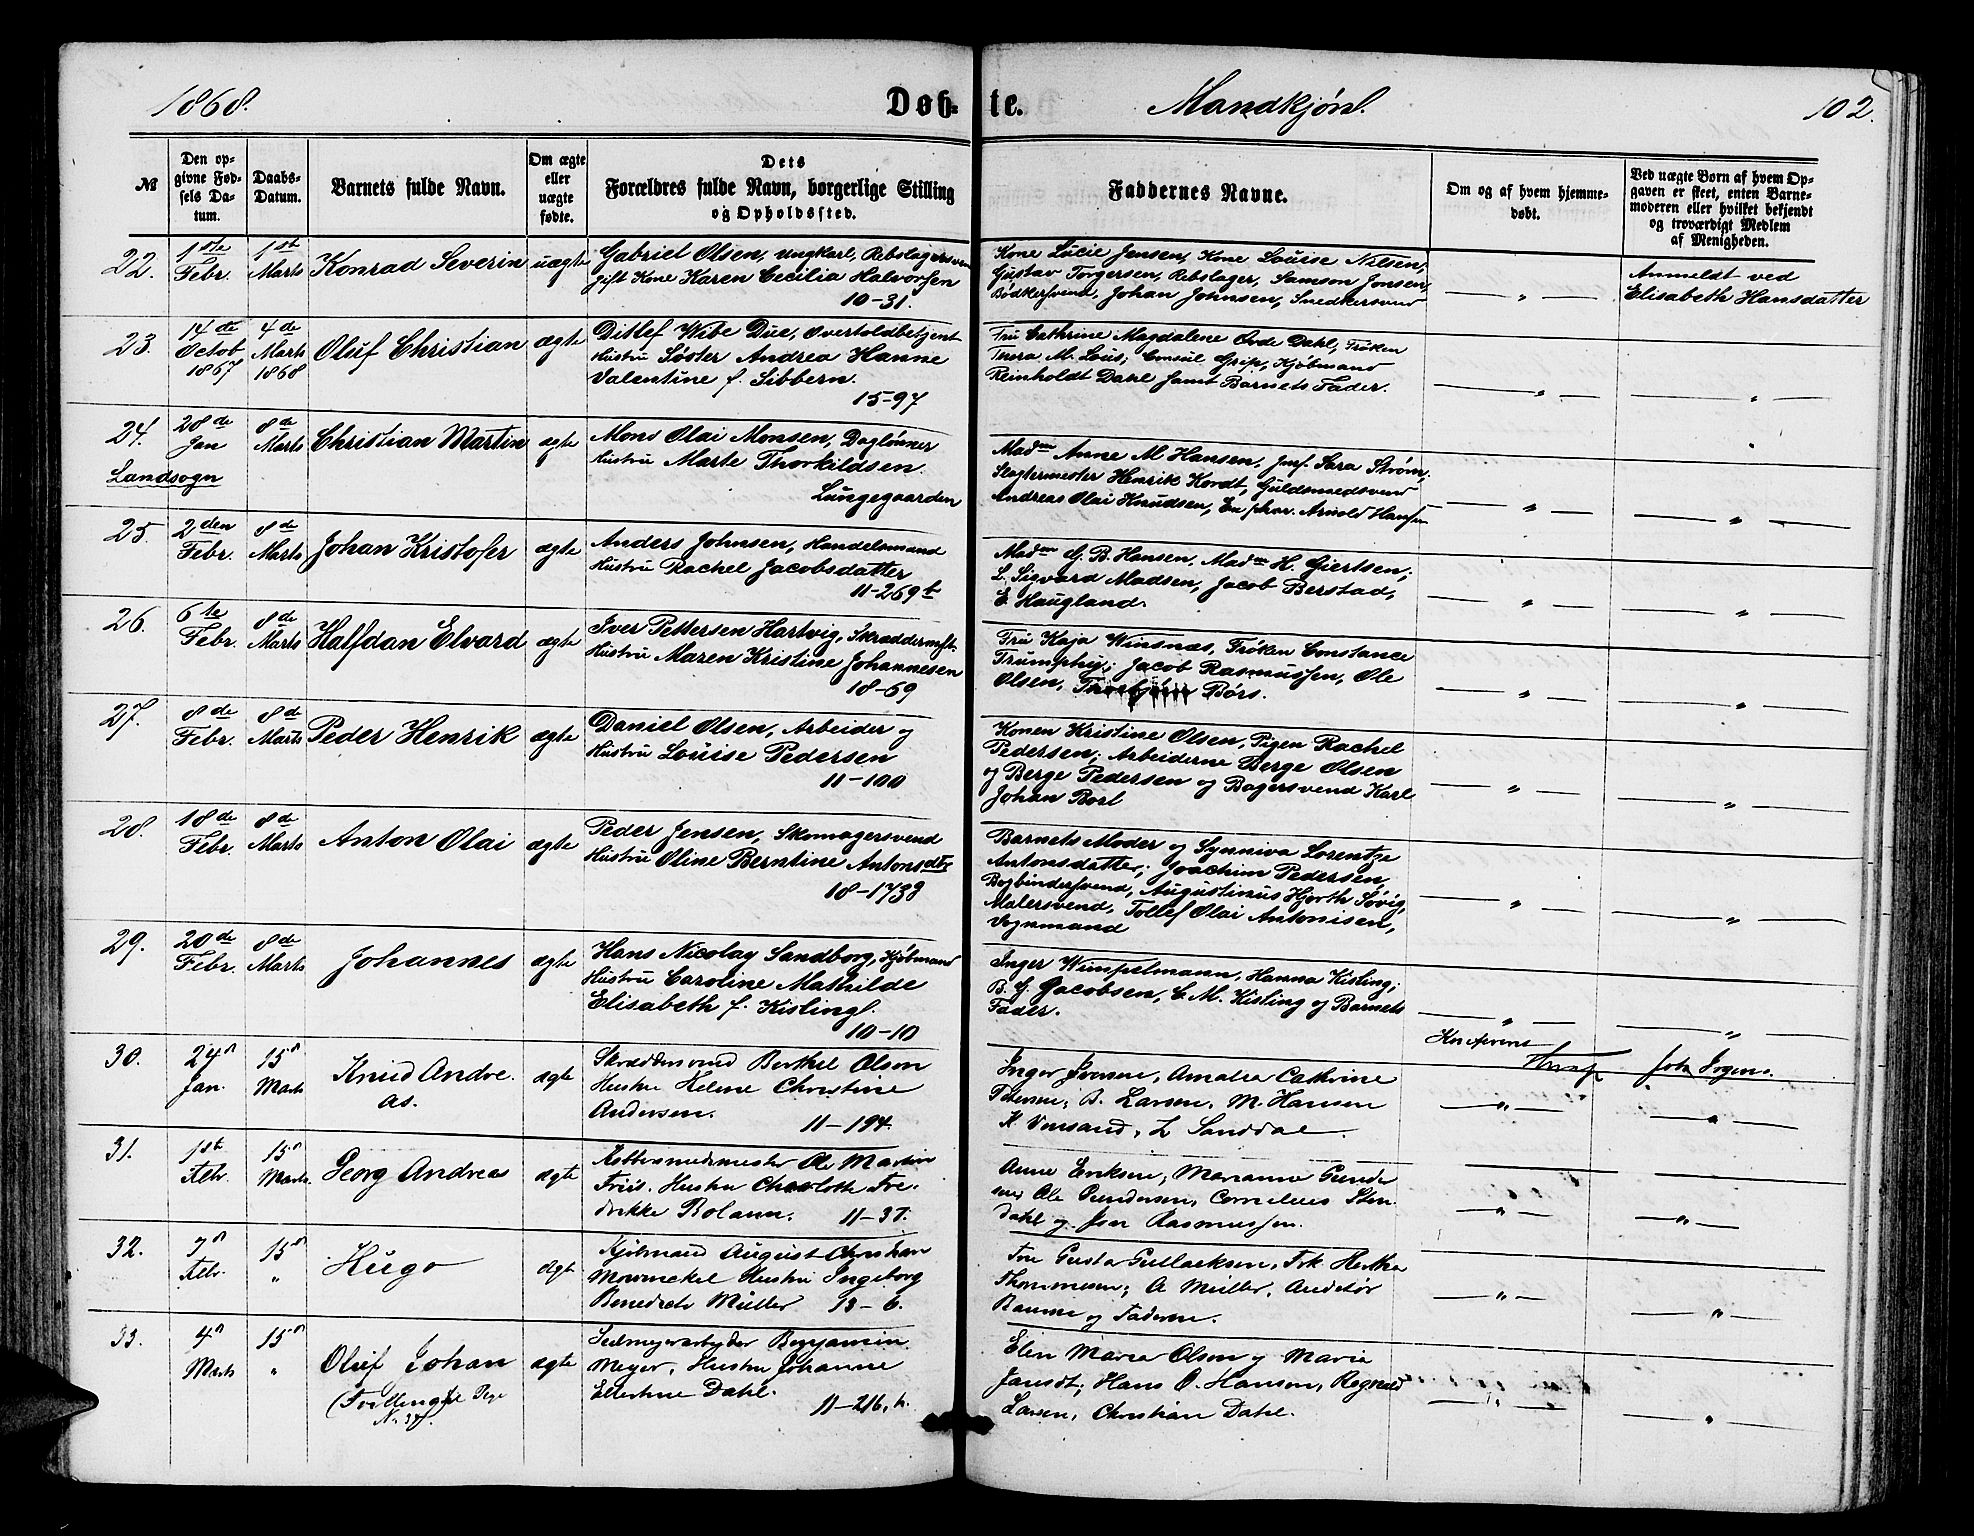 1868.
Døb- te.
Mandkjøn.
102.
№
Den op-
givne Fød-
sels Da-
tum.
Daabs-
Datum.
Barnets fulde Navn.
Om ægte
eller
uægte
fødte.
Dets
Forældres fulde Navn, borgerlige Stilling
og Opholdssted.
Faddernes Navne.
Om og af hvem hjemme-
døbt.
Ved uægte Børn af hvem Op-
gaven er skeet, enten Barne-
moderen eller hvilket bekjendt
og troværdigt Medlem
af Menigheden.
22.
1ste
Febr.
1st
Marts
Konrad Severin
uægte
Gabriel Olsen, Ungkarl, Rebslagersvend
gift Kone Karen Cecilia Halvorsen
10-31.
Kone Lucie Jensen, Kone Louise Nilsen,
Gustav Torgersen, Rebslager, Samson Jonsen,
Bødkersvend, Johan Johnsen, Snedkersvend
— " —
Anmeldt ved
Elisabeth Hansdatter
23.
14de
Octob
1867
4de
Marts
1868
Oluf Christian
ægte
Ditlef Wibe Due, Overtoldbetjent
Hustru Søster Andrea Hanne
Valentine f. Sibbern.
15-97
Fru Cathrine Magdalene Dahl, Frøken
Thora M. Louis, Consul Grip, Kjøbmand
Reinholdt Dahl samt Barnets Fader.
— " —
— " —
24.
Landsogn
28de
Jan
8de
Marts
Christian Martin
ægte
Mons Olai Monsen, Daglønner
Hustru Marte Thorkildsen.
Lungegaarden
Madm Anne M Hansen, Jmf. Sara Strøm;
Slagtermester Henrik Kordt, Guldsmedsvend
Andreas Olai Knudsen, Arnold Hansen
— " —
— " —
25.
2den
Febr.
8de
Marts
Johan Kristofer
ægte
Anders Johnsen, Handelsmand
Hustru Rachel Jacobsdatter
11-269b
Madm G. B. Hansen, Madm H. Giertsen;
L. Sigvard Madsen, Jacob Berstad,
E. Haugland.
— " —
— " —
26.
6te
Febr.
8de
Marts
Halfdan Elvard
ægte
Iver Pettersen Hartvig, Skræddermest.
Hustru Maren Kristine Johannesen
18-69
Fru Kaja Winsnæs, Frøken Constance
Trumphy; Jacob Rasmussen, Ole
Olsen, Børs.
— " —
— " —
27.
8de
Febr.
8d
Marts
Peder Henrik
ægte
Daniel Olsen, Arbeider og
Hustru Louise Pedersen
11-100
Konen Kristine Olsen, Pigen Rachel
Pedersen; Arbeiderne Berge Olsen
og Berge Pedersen og Bagersvend Karl
Johan Borl
— " —
— " —
28.
18de
Febr.
8de
Marts
Anton Olai
ægte
Peder Jensen, Skomagersvend
Hustru Oline Berntine Antonsdtr
18-173
Barnets Moder og Synniva Lorentze
Antonsdatter; Joachim Pedersen
Bogbindersvend, Augustinus Hjorth Søvig,
Malersvend, Tollef Olai Antonisen,
Vognmand
— " —
— " —
29.
20de
Febr.
8de
Marts
Johannes
ægte
Hans Nicolay Sandborg, Kjøbmand
Hustru Caroline Mathilde
Elisabeth f. Kisling.
10-10
Inger Wimpelmann, Hanna Kisling;
B. J. Jacobsen, C. M. Kisling og Barnets
Fader.
— " —
— " —
30.
24
Jan.
15
Marts
Knud Andre-
as.
ægte
Skræddersvend Berthel Olson
Hustru Helene Christine
Andersen.
11-194.
Inger Iversen, Amalia Cathrine
Petersen; B. Larsen, M. Hansen
K Vinsand, L Sanddal.
— " —
"
31.
1st
Febr.
15
Marts
Georg Andreas
ægte
Kobbersmedmester Ole Martin
Friis. Hustru Charlotte Fre-
drikke Bolann.
11-37.
Anne Eriksen, Marianne Gunder
sen; Ole Gundersen, Cornelius Sten
Dahl og Jon Rasmussen.
— " —
— " —
32.
7
Febr.
15
"
Hugo
ægte
Kjøbmand August Christian
Mowinckel Hustru Ingeborg
Benedicte Müller
13-6.
Fru Gusta Gullacksen, Frk Hertha
Thommesen; A Müller,
Baunne og Faderen.
— " —
— " —
33.
4
Marts
15
"
Oluf Johan
(Tvilling Pige
N. 34).
ægte
Seilmagerarbeider Benjamin
Meyer, Hustru Johanne
Ellertine Dahl.
11-216, b.
Elen Maria Olson og Maria
Hans O. Hanson, Regnald
Larsen, Christian Dahl.
— " —
— " —